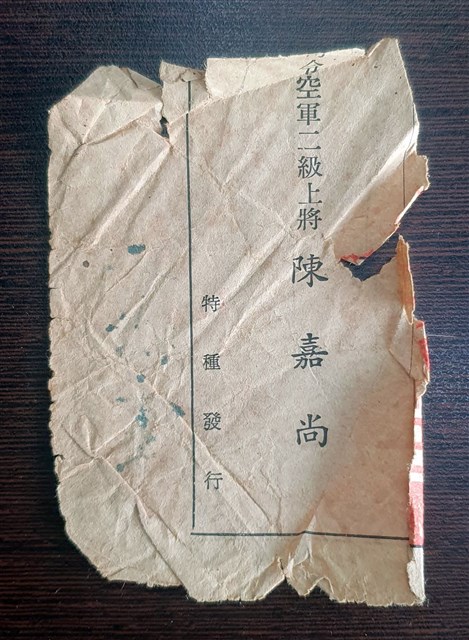 令空軍二級上將陳嘉尚
特種發行